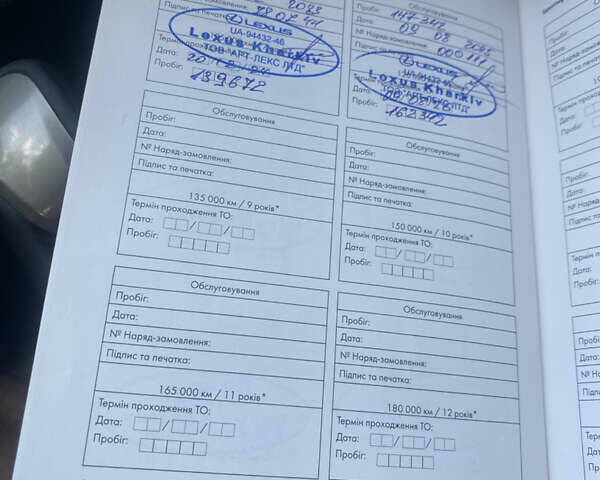 2022
28 02 22
Підпис та печатка
LEXUS
UA-94432-46
Lexus Kharkiv
ТОВ "АРТ-ЛЕКС ЛТД"
Дата:
Пробіг:
139672
Обслуговування
Пробіг: 147342
Дата: 09 08
№ Наряд-замовлення:
Підпис та печатка:
LEXUS
Lexus Kharkiv
Дата:
Пробіг:
162342
Обслуговування
Пробіг:
Дата:
№ Наряд-замовлення:
Підпис та печатка:
135 000 км / 9 років*
Термін проходження ТО:
Дата: / /
Пробіг:
Обслуговування
Пробіг:
Дата:
№ Наряд-замовлення:
Підпис та печатка:
150 000 км / 10 років*
Термін проходження ТО:
Дата: / /
Пробіг:
Обслуговування
Пробіг:
Дата:
№ Наряд-замовлення:
Підпис та печатка:
165 000 км / 11 років*
Термін проходження ТО:
Дата: / /
Пробіг:
Обслуговування
Пробіг:
Дата:
№ Наряд-замовлення:
Підпис та печатка:
180 000 км / 12 років*
Термін проходження ТО:
Дата: / /
Пробіг:
Пробіг
Дата:
№ Наря
Підпис
Термін п
Дата:
Пробіг:
Дата:
№ Нар
Підпи
Термі
Дата
Пробі